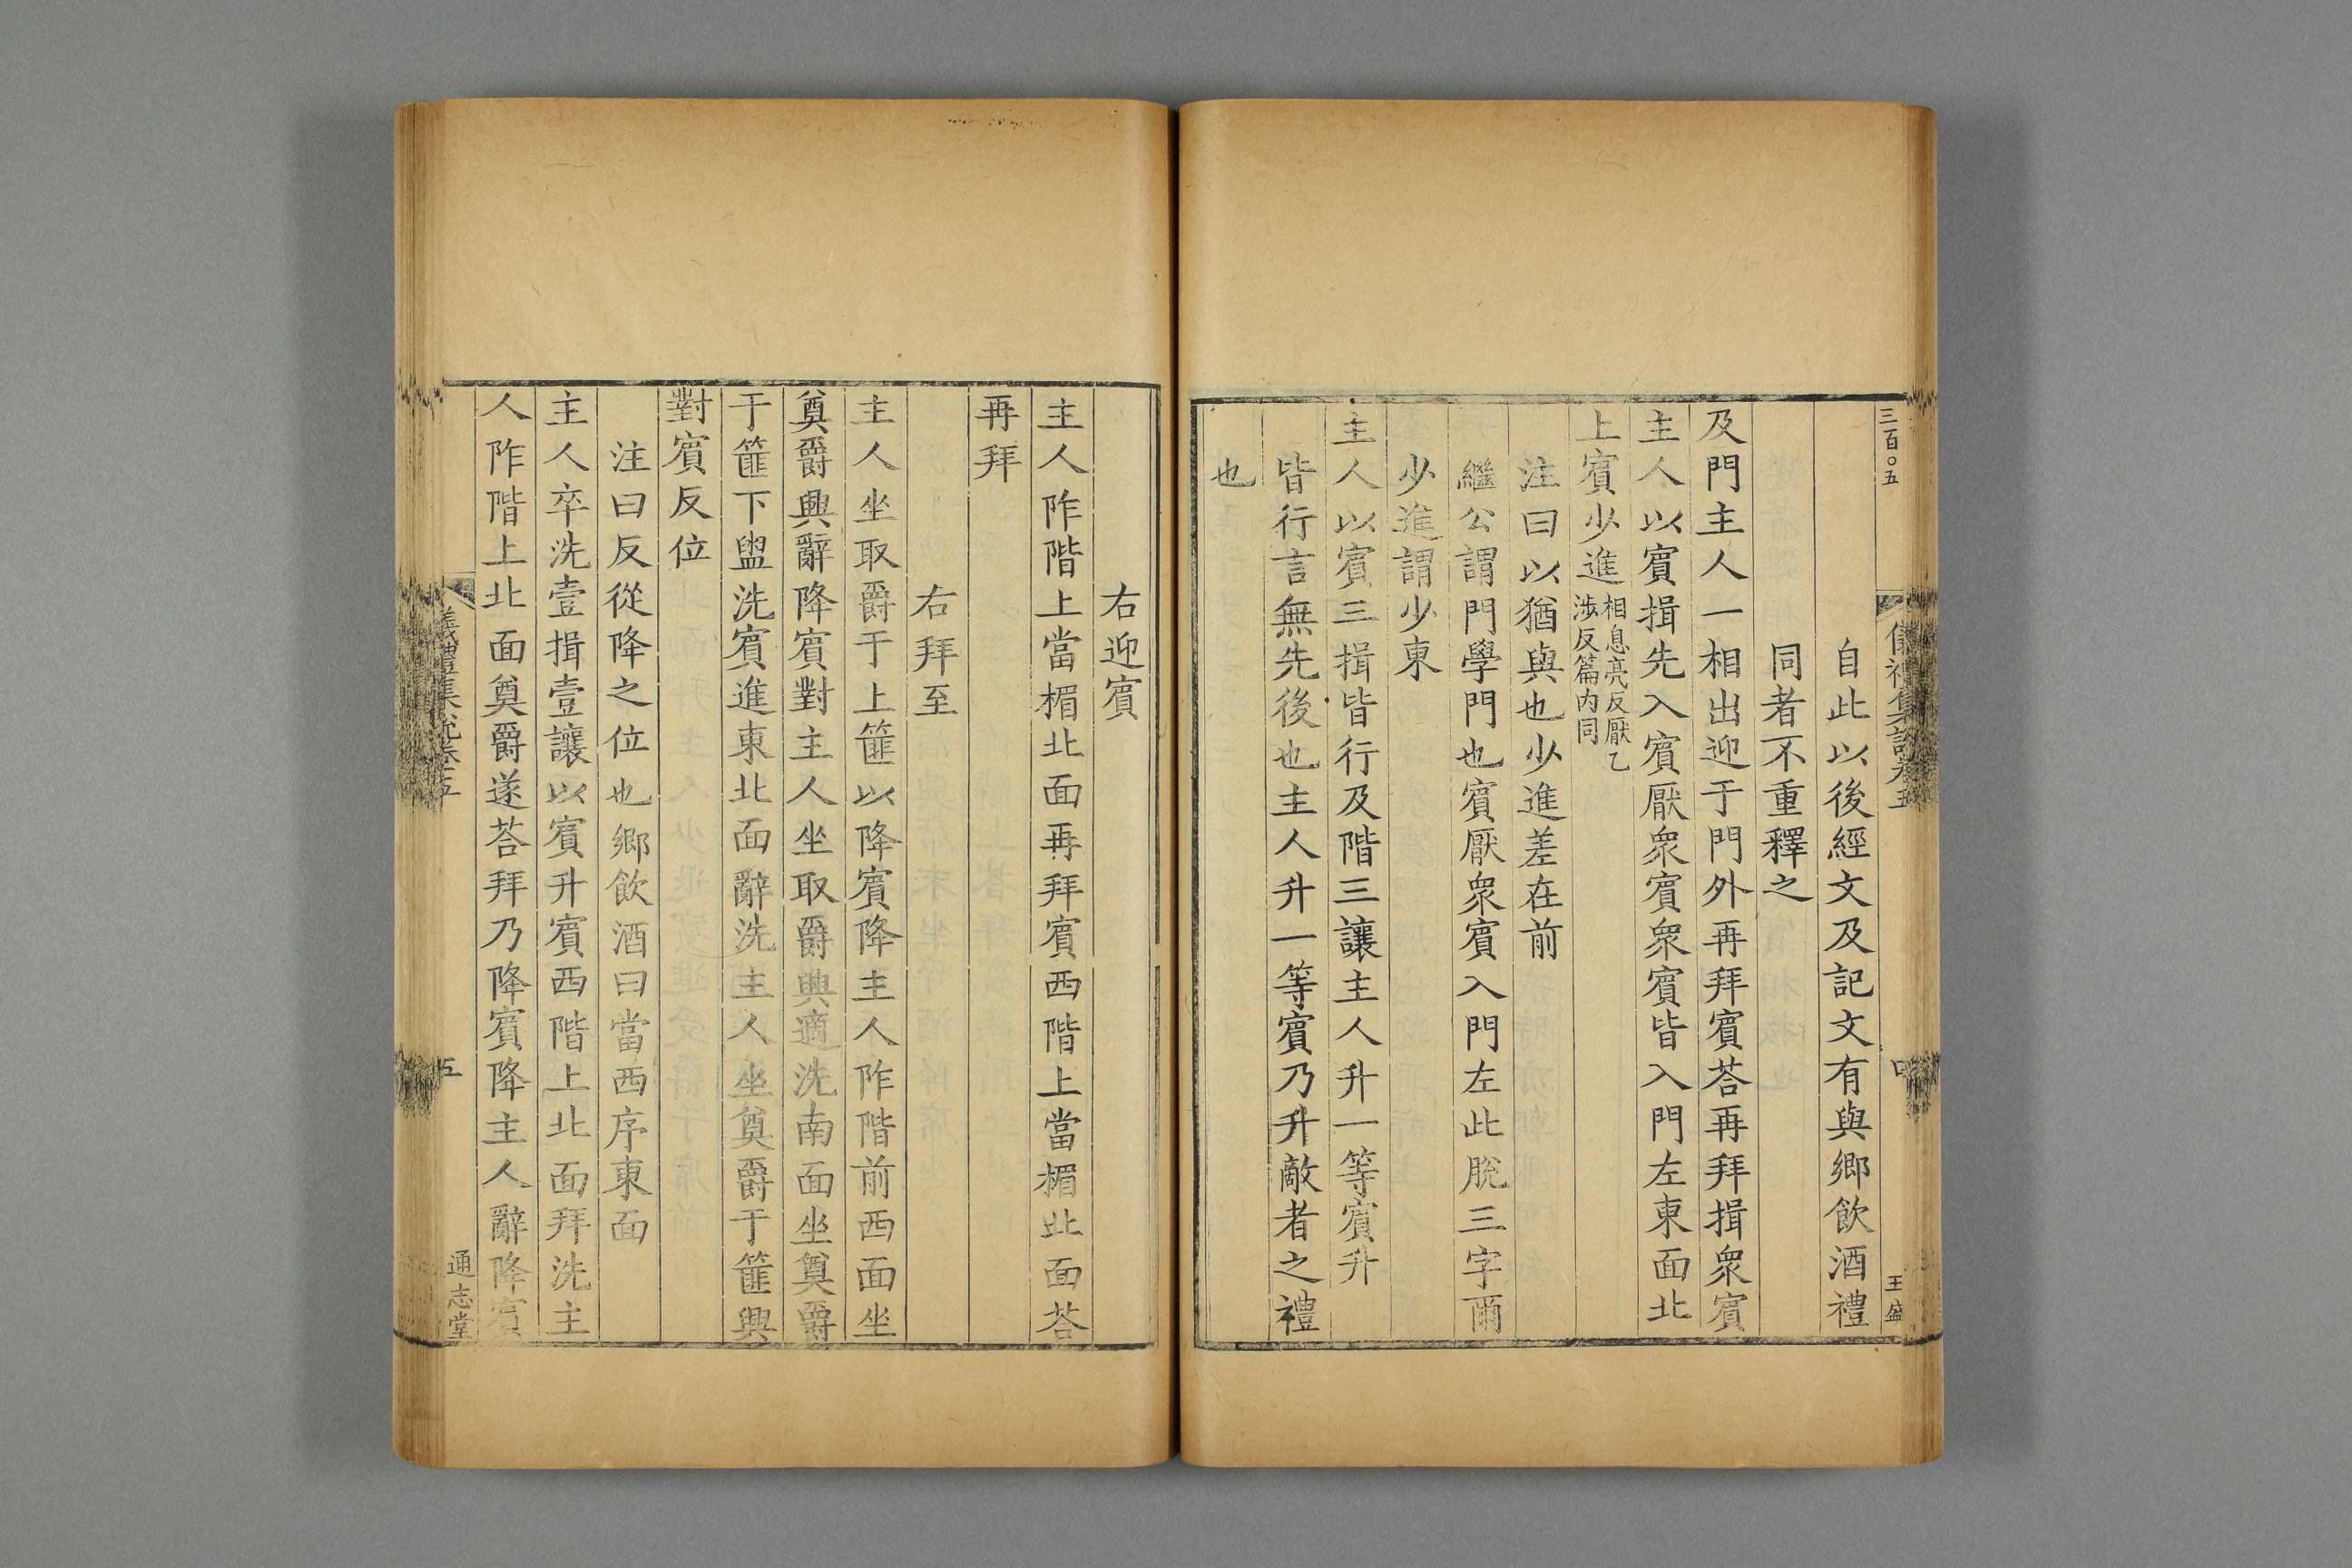 三百〇五
儀禮集說卷五
王盛
自此以後經文及記文有與鄉飲酒禮
同者不重釋之
及門主人一相出迎于門外再拜賓荅再拜揖衆賓
主人以賓揖先入賓厭衆賓衆賓皆入門左東面北
上賓少進相息亮反厭乙
涉反篇内同
注曰以猶與也少進差在前
繼公謂門學門也賓厭衆賓入門左此脫三字爾
少進謂少東
主人以賓三揖皆行及階三讓主人升一等賓升
皆行言無先後也主人升一等賓乃升敵者之禮
也
右迎賓
主人阼階上當楣北面再拜賓西階上當楣北面荅
再拜
右拜至
主人坐取爵于上篚以降賓降主人阼階前西面坐
奠爵興辭降賓對主人坐取爵興適洗南面坐奠爵
于篚下盥洗賓進東北面辭洗主人坐奠爵于篚興
對賓反位
注曰反從降之位也鄉飲酒曰當西序東面
主人卒洗壹揖壹讓以賓升賓西階上北面拜洗主
人阼階上北面奠爵遂荅拜乃降賓降主人辭降賓
儀禮集說卷五
五
通志堂